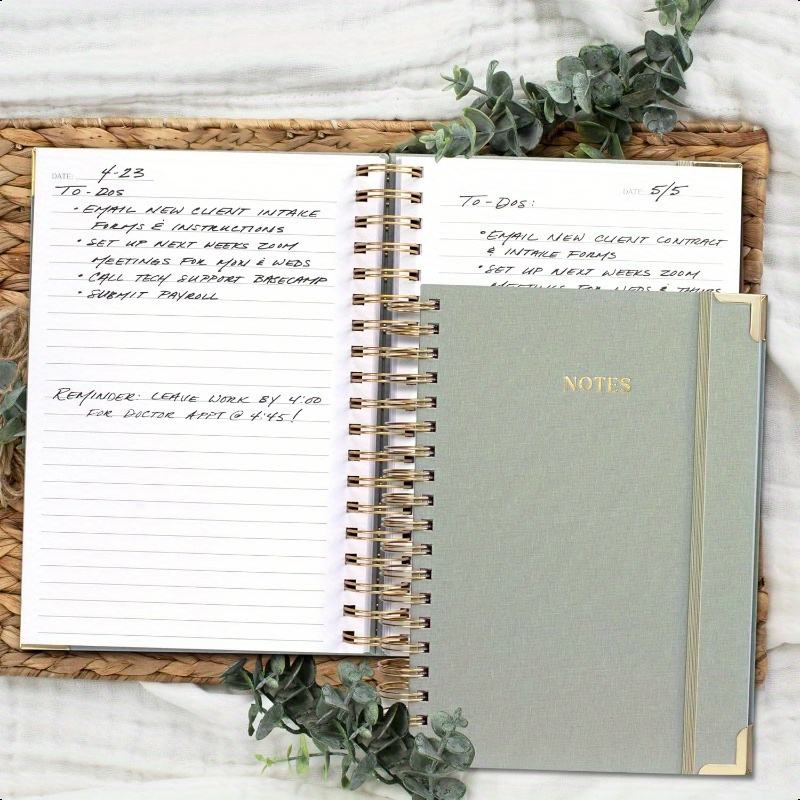 DATE: 4-23
TO-DOS
• EMAIL NEW CLIENT INTAKE
FORMS & INSTRUCTIONS
• SET UP NEXT WEEKS ZOOM
MEETINGS FOR MON & WEDS
• CALL TECH SUPPORT BASECAMP
• SUBMIT PAYROLL
REMINDER: LEAVE WORK BY 4:00
FOR DOCTOR APPT @ 4:45!
DATE: 5/5
TO-DOS:
• EMAIL NEW CLIENT CONTRACT
& INTAKE FORMS
• SET UP NEXT WEEKS ZOOM
MEETINGS FOR WEDS & THURS
NOTES